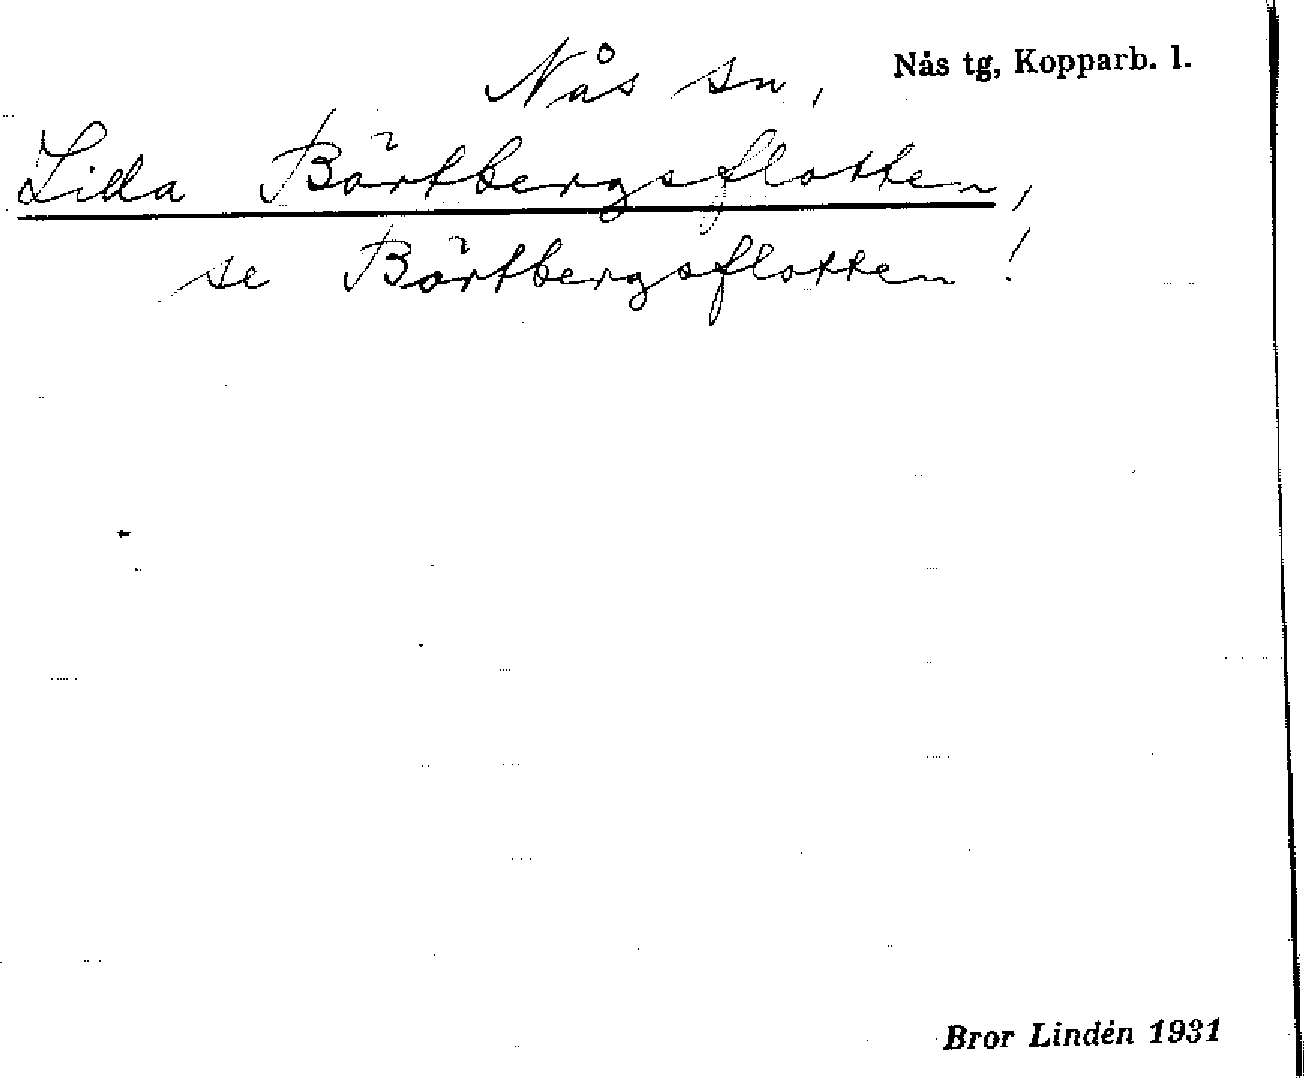 Nås sn,
Nås tg, Kopparb. l.
Lilla Börtbergsflotten,
se Börtbergsflotten!
Bror Lindén 1931